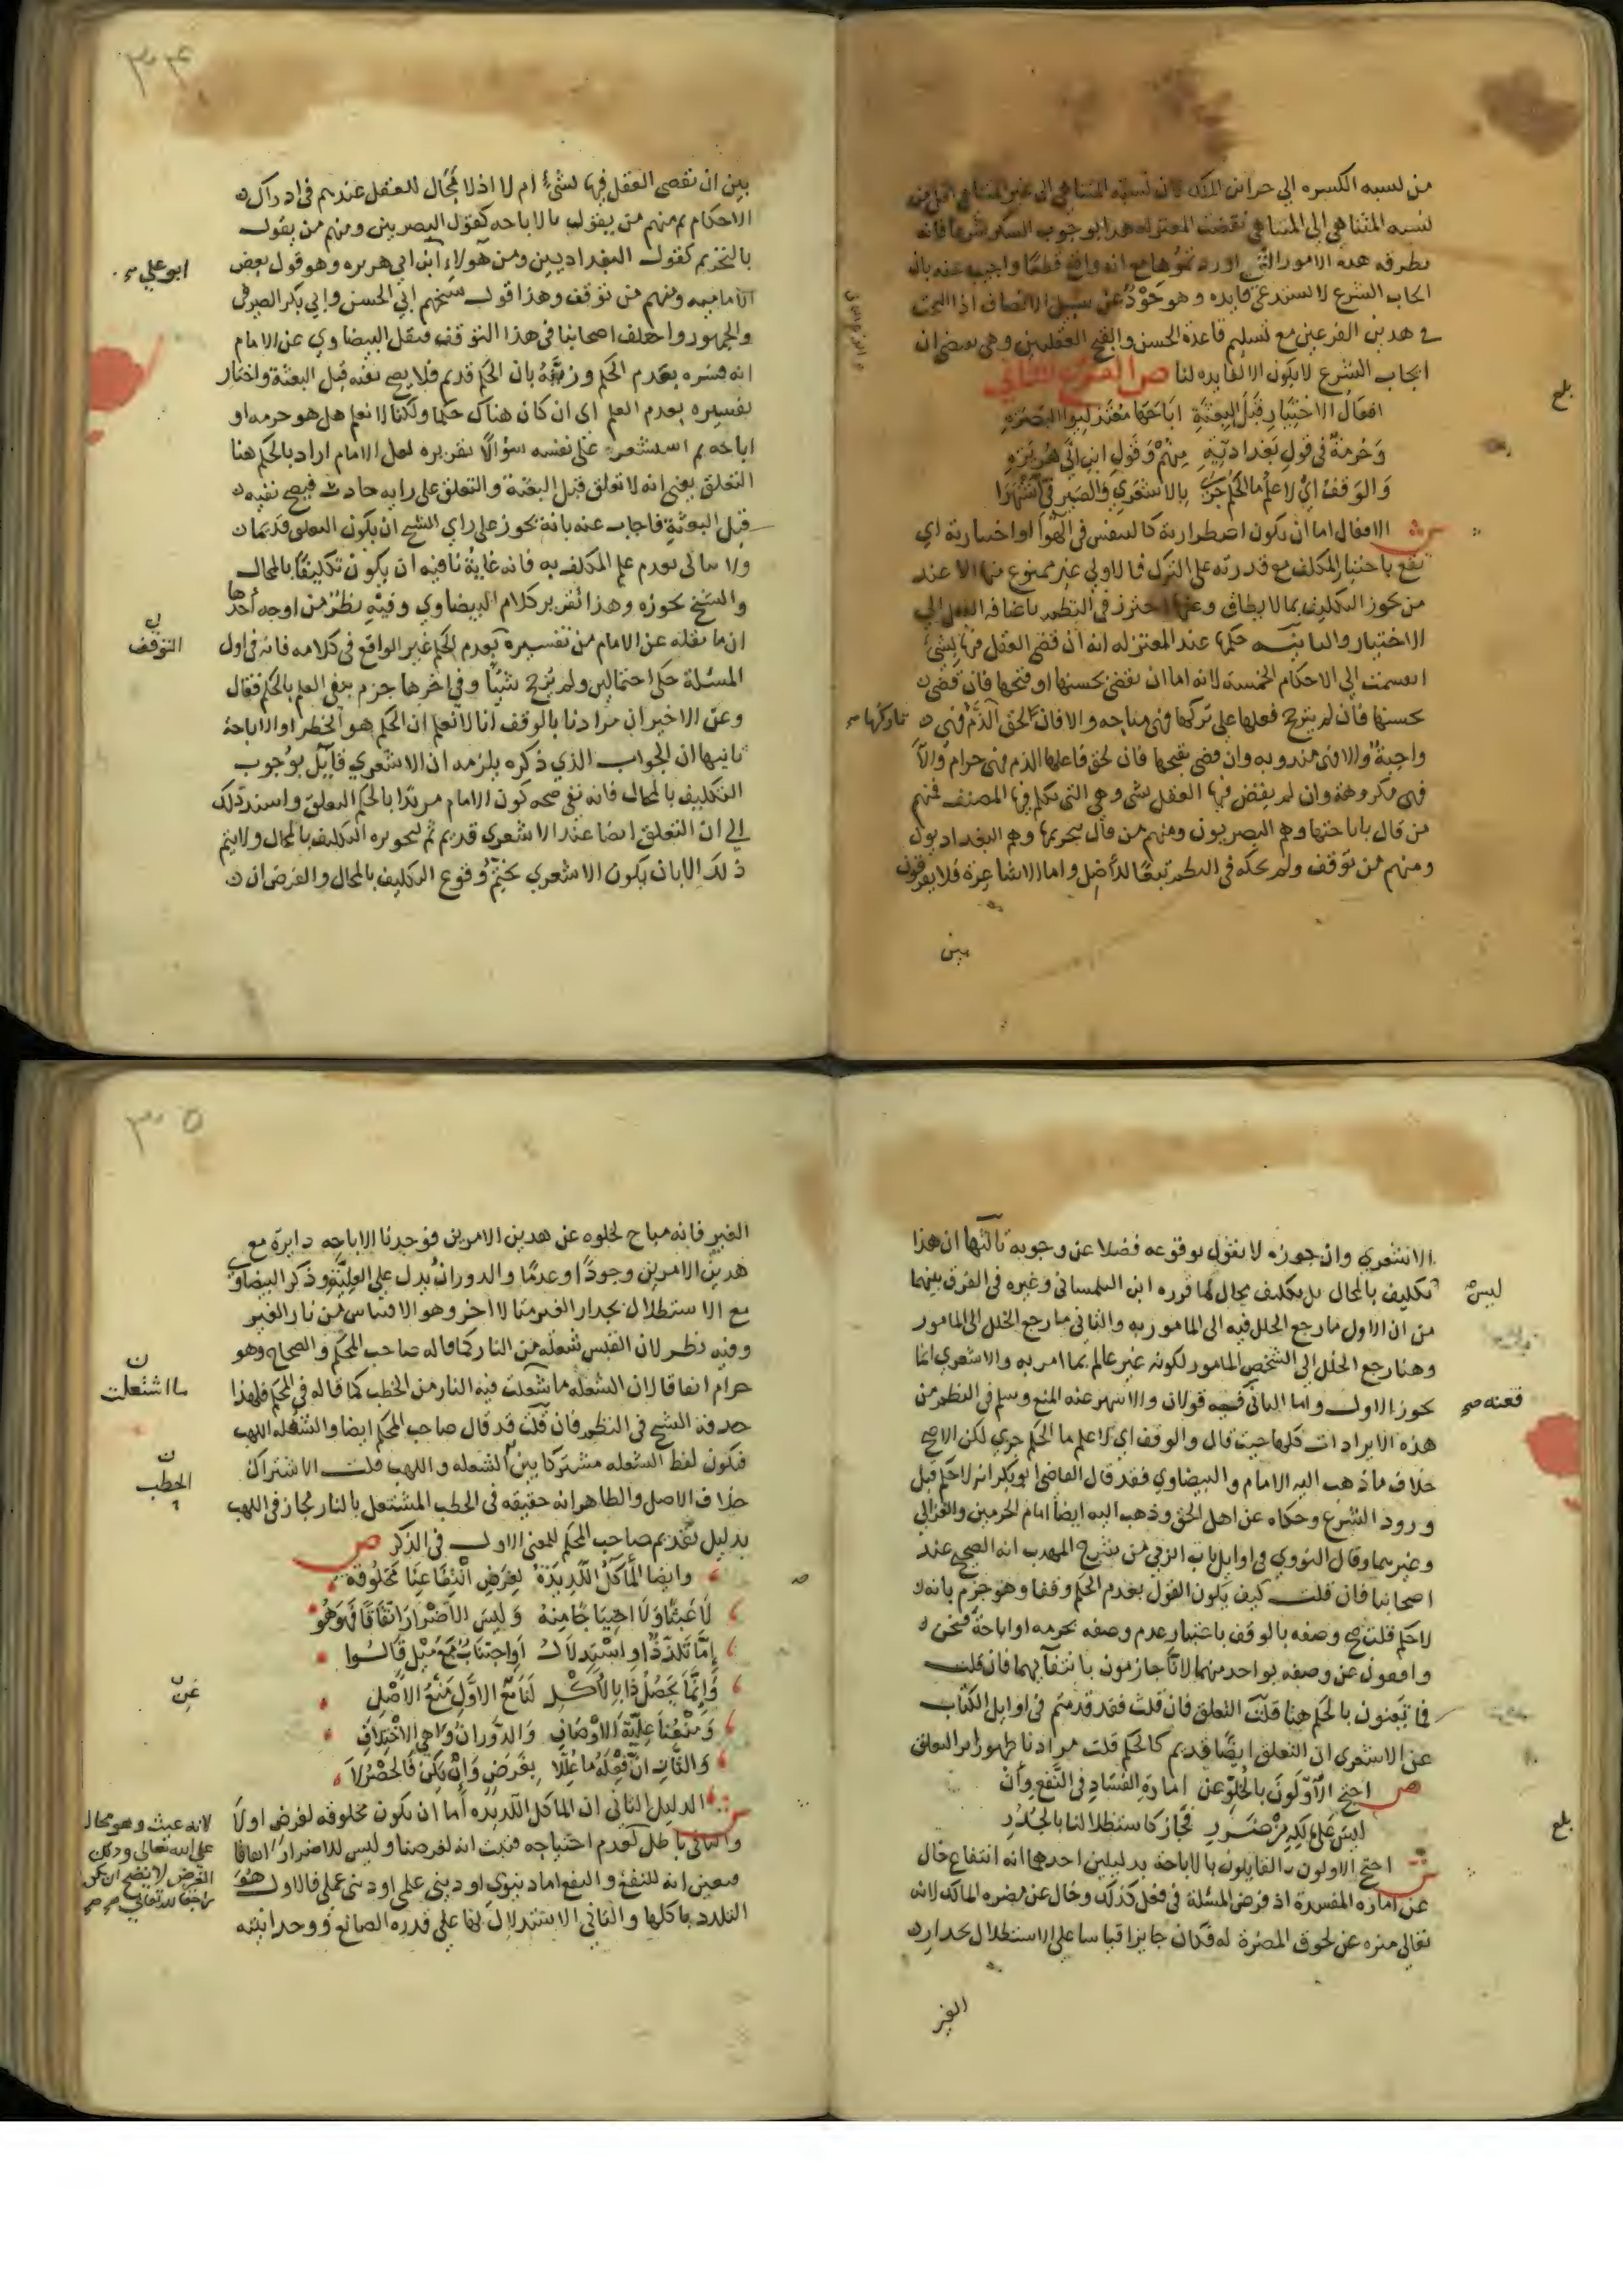 من نسبه الكسره الي خزاين الملك لان نسبة المتناهي الى غير المتناهي اقل من
نسبه المتناهي الى المتناهي نقضت المعتزله هذا بوجوب الشكر شرعا فانه
يطرقه هذه الامور التي اوردتموها مع انه واقع قطعا واجيب عنه بان
ايجاب الشرع لا يستدعي فايده و هو حَوْدٌ عن سبيل الانصاف اذ البحث
في هذين الفرعين مع تسليم قاعدة الحسن والقبح العقليين وهي تقتضي ان
ايجاب الشرع لا يكون الا لفايده لنا ص الفرع الثاني
افعال الاختيار قبل البعثة اباحها معتزليوا البصره
وحرمة في قول بغدادية منهم وقول ابن ابي هريره
والوقف اي لا علم ما الحكم جرى بالاشعري والصيرفي اشتهرا
ش الافعال اما ان تكون اضطرارية كالتنفس في الهوا او اختيارية اي
تقع باختيار المكلف مع قدرته على الترك فالاولي غير ممنوع منها الا عند
من يجوز التكليف بما لا يطاق وعنها احترز في النظم باضافه الفعل الي
الاختيار والثانيه حكمها عند المعتزله انه ان قضى العقل فيها بشئ
انقسمت إلى الاحكام الخمسه لانه اما ان يقضي بحسنها او قبحها فان قضى
بحسنها فان لم يترجح فعلها على تركها فهي مباحه والا فان لحق الذم فهي
تاركها صح
واجبة والا فهي مندوبه وان قضى بقبحها فان لحق فاعلها الذم فهي حرام والا
فهي مكروهة وان لم يقض فيها العقل بشي وهي التي تكلم فيها المصنف فمنهم
من قال باباحتها وهم البصريون ومنهم من قال بتحريمها وهم البغداديون
ومنهم من توقف ولم يحكه في النظم تبعًا للأصل واما الاشاعرة فلا يفرقون
بين
بلغ
٣٠٤
بين ان يقضي العقل فيها بشئ ام لا اذ لا مجال للعقل عندهم في ادراك
الاحكام ثم منهم من يقول بالاباحه كقول البصريين ومنهم من يقول
بالتحريم كقول البغداديين ومن هولاء ابن ابي هريره وهو قول بعض
ابو علي صح
الاماميه ومنهم من توقف وهذا قول شيخهم ابي الحسن وابي بكر الصيرفي
والجمهور واختلف اصحابنا في هذا التوقف فنقل البيضاوي عن الامام
انه فسره بعدم الحكم وزيَّفه بان الحكم قديم فلا يصح نفيه قبل البعثة واختار
تفسيره بعدم العلم اى ان كان هناك حكما ولكنا لا نعلم هل هو حرمه او
اباحه ثم استشعر على نفسه سؤالًا تقريره لعل الامام اراد بالحكم هنا
التعلق يعني انه لا تعلق قبل البعثة والتعلق على رايه حادث فيصح نفيه
قبل البعثة فاجاب عنه بانه يجوز على راي الشيخ ان يكون التعلق قديما
ولا ينافى عدم علم المكلف به فانه غاية ما فيه ان يكون تكليفا بالمحال
والشيخ يجوزه وهذا تقرير كلام البيضاوي وفيه نظر من اوجه أحدها
ان ما نقله عن الامام من تفسيره بعدم الحكم غير الواقع في كلامه فانه في اول
التوقف
المسئلة حكى احتمالين ولم يرجح شيئًا وفي اخرها جزم بنفي العلم بالحكم فقال
وعن الاخير ان مرادنا بالوقف انا لا نعلم ان الحكم هو الحظر او الاباحة
ثانيها ان الجواب الذي ذكره يلزمه ان الاشعري قايل بوجوب
التكليف بالمحال فانه نفى صحه كون الامام مريدا بالحكم التعلق واسند ذلك
الى ان التعلق ايضا عند الاشعري قديم ثم تجويزه التكليف بالمحال ولا يتم
ذلك الا بان يكون الاشعري يحتم وقوع التكليف بالمحال والفرض ان
الاشعري وان جوزه لا يقول بوقوعه فضلا عن وجوبه ثالثها ان هذا
ليس
تكليف بالمحال بل تكليف محال لما قرره ابن التلمساني وغيره في الفرق بينهما
من ان الاول ما رجع الخلل فيه الى المامور به والثاني ما رجع الخلل الى المامور
وهنا رجع الخلل الي الشخص المامور لكونه غير عالم بما امر به والاشعري انما
يجوز الاول واما الثاني فيه قولان والاشهر عنه المنع وسلم في النظم من
فعنه صح
هذه الايرادات كلها حيث قال والوقف اي لا علم ما الحكم جري لكن الاصح
خلاف ما ذهب اليه الامام والبيضاوي فقد قال القاضي ابو بكر انه لا حكم قبل
ورود الشرع وحكاه عن اهل الحق وذهب اليه ايضا امام الحرمين والغزالي
وغيرهما وقال النووي في اوايل باب الربي من شرح المهذب انه الصحيح عند
اصحابنا فان قلت كيف يكون القول بعدم الحكم وقفا وهو جزم بانه
لا حكم قلت صح وصفه بالوقف باعتبار عدم وصفه بحرمه او اباحة فنحن
واقفون عن وصفه بواحد منهما لانا جازمون بانتفائهما فان قلت
فما تعنون بالحكم هنا قلت التعلق فان قلت فقد قدمتم في اوايل الكتاب
عن الاشعري ان التعلق ايضًا قديم كالحكم قلت مرادنا ظهور اثر التعلق
ص احتج الاولون بالخلو عن امارة الفساد في النفع وأن
ليس على المالك من ضرر فجاز كاستظلالنا بالجدر
ش احتج الاولون القايلون بالاباحة بدليلين احدهما انه انتفاع خال
عن امارة المفسدة اذ فرض المسئلة في فعل كذلك وخال عن مضره المالك لانه
تعالى منزه عن لحوق المضرة له فكان جايزا قياسا على الاستظلال بجدار
الغير
بلغ
٣٠٥
الغير فانه مباح لخلوه عن هذين الامرين فوجدنا الاباحه دايرة مع
هذين الامرين وجودًا وعدمًا والدوران يدل على العلية وذكر البيضاوي
مع الاستظلال بجدار الغير مثالا اخر وهو الاقتباس من نار الغير
وفيه نظر لان القبس شعله من النار كما قاله صاحب المحكم والصحاح وهو
حرام اتفاقا لان الشعله ما شعلت فيه النار من الحطب كما قاله في المحكم فلهذا
ما اشتعلت
حذفه الشيخ في النظم فان قلت قد قال صاحب المحكم ايضا والشعله اللهب
فيكون لفظ الشعله مشتركا بين الشعله و اللهب قلت الاشتراك
الحطب
خلاف الاصل والظاهر انه حقيقه في الحطب المشتعل بالنار مجاز في اللهب
بدليل تقديم صاحب المحكم للمعنى الاول في الذكر ص
وايضا المأكل اللذيذة لغرض انتفاعنا مخلوقة
لا عبثا ولا احتياجا منه وليس الاضرار اتفاقا فهو هو
إما تلذذ او استدلال أو اجتناب مع ميل قالوا
وإنما يحصل ذا بالاكل لنا مع الاول منع الاصل
عن
ومنعنا علية الاوصاف والدوران واهي الاختلاف
والثان ان فعله ما عللا بغرض وإن يكن فالحصر لا
ش الدليل الثاني ان الماكل اللذيذه أما ان تكون مخلوقه لغرض اولا
والثاني باطل لعدم احتياجه فثبت انه لغرضنا وليس للاضرار اتفاقا
لانه عبث وهو محال
على الله تعالى وذلك
الغرض لا يصح ان يكون
راجعا لله تعالى صح
فتعين انه للنفع والنفع اما دنيوي او ديني علمي او ديني عملي فالاول هو
التلذذ باكلها والثاني الاستدلال بها على قدرة الصانع ووحدانيته